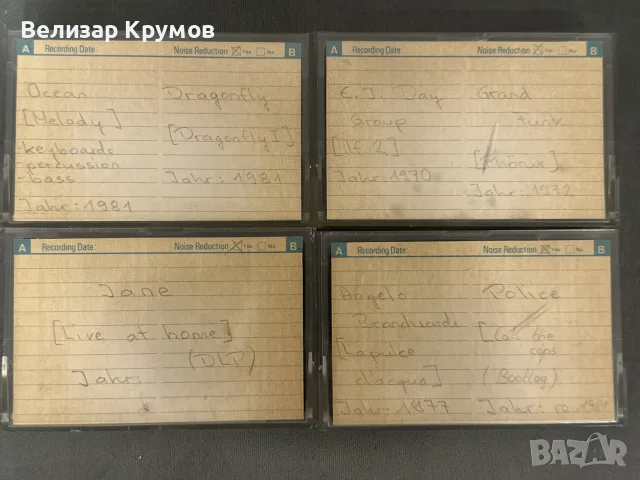 Велизар Крумов
A Recording Date: Noise Reduction Yes No B
Ocean
[Melody]
-keyboards
-percussion
-bass
Jahr: 1981
Dragonfly
[Dragonfly I]
Jahr: 1981
A Recording Date: Noise Reduction Yes No B
Day
Group
Jahr: 1970
Grand
funk
[Phönix]
Jahr: 1972
A Recording Date: Noise Reduction Yes No B
Jane
[Live at home]
(DLP)
Jahr:
A Recording Date: Noise Reduction Yes No B
Angelo
Branduardi
[Lapulce
dacqua]
Jahr: 1977
Police
[Call the
cops
(Bootleg)
Jahr:
BAZAR